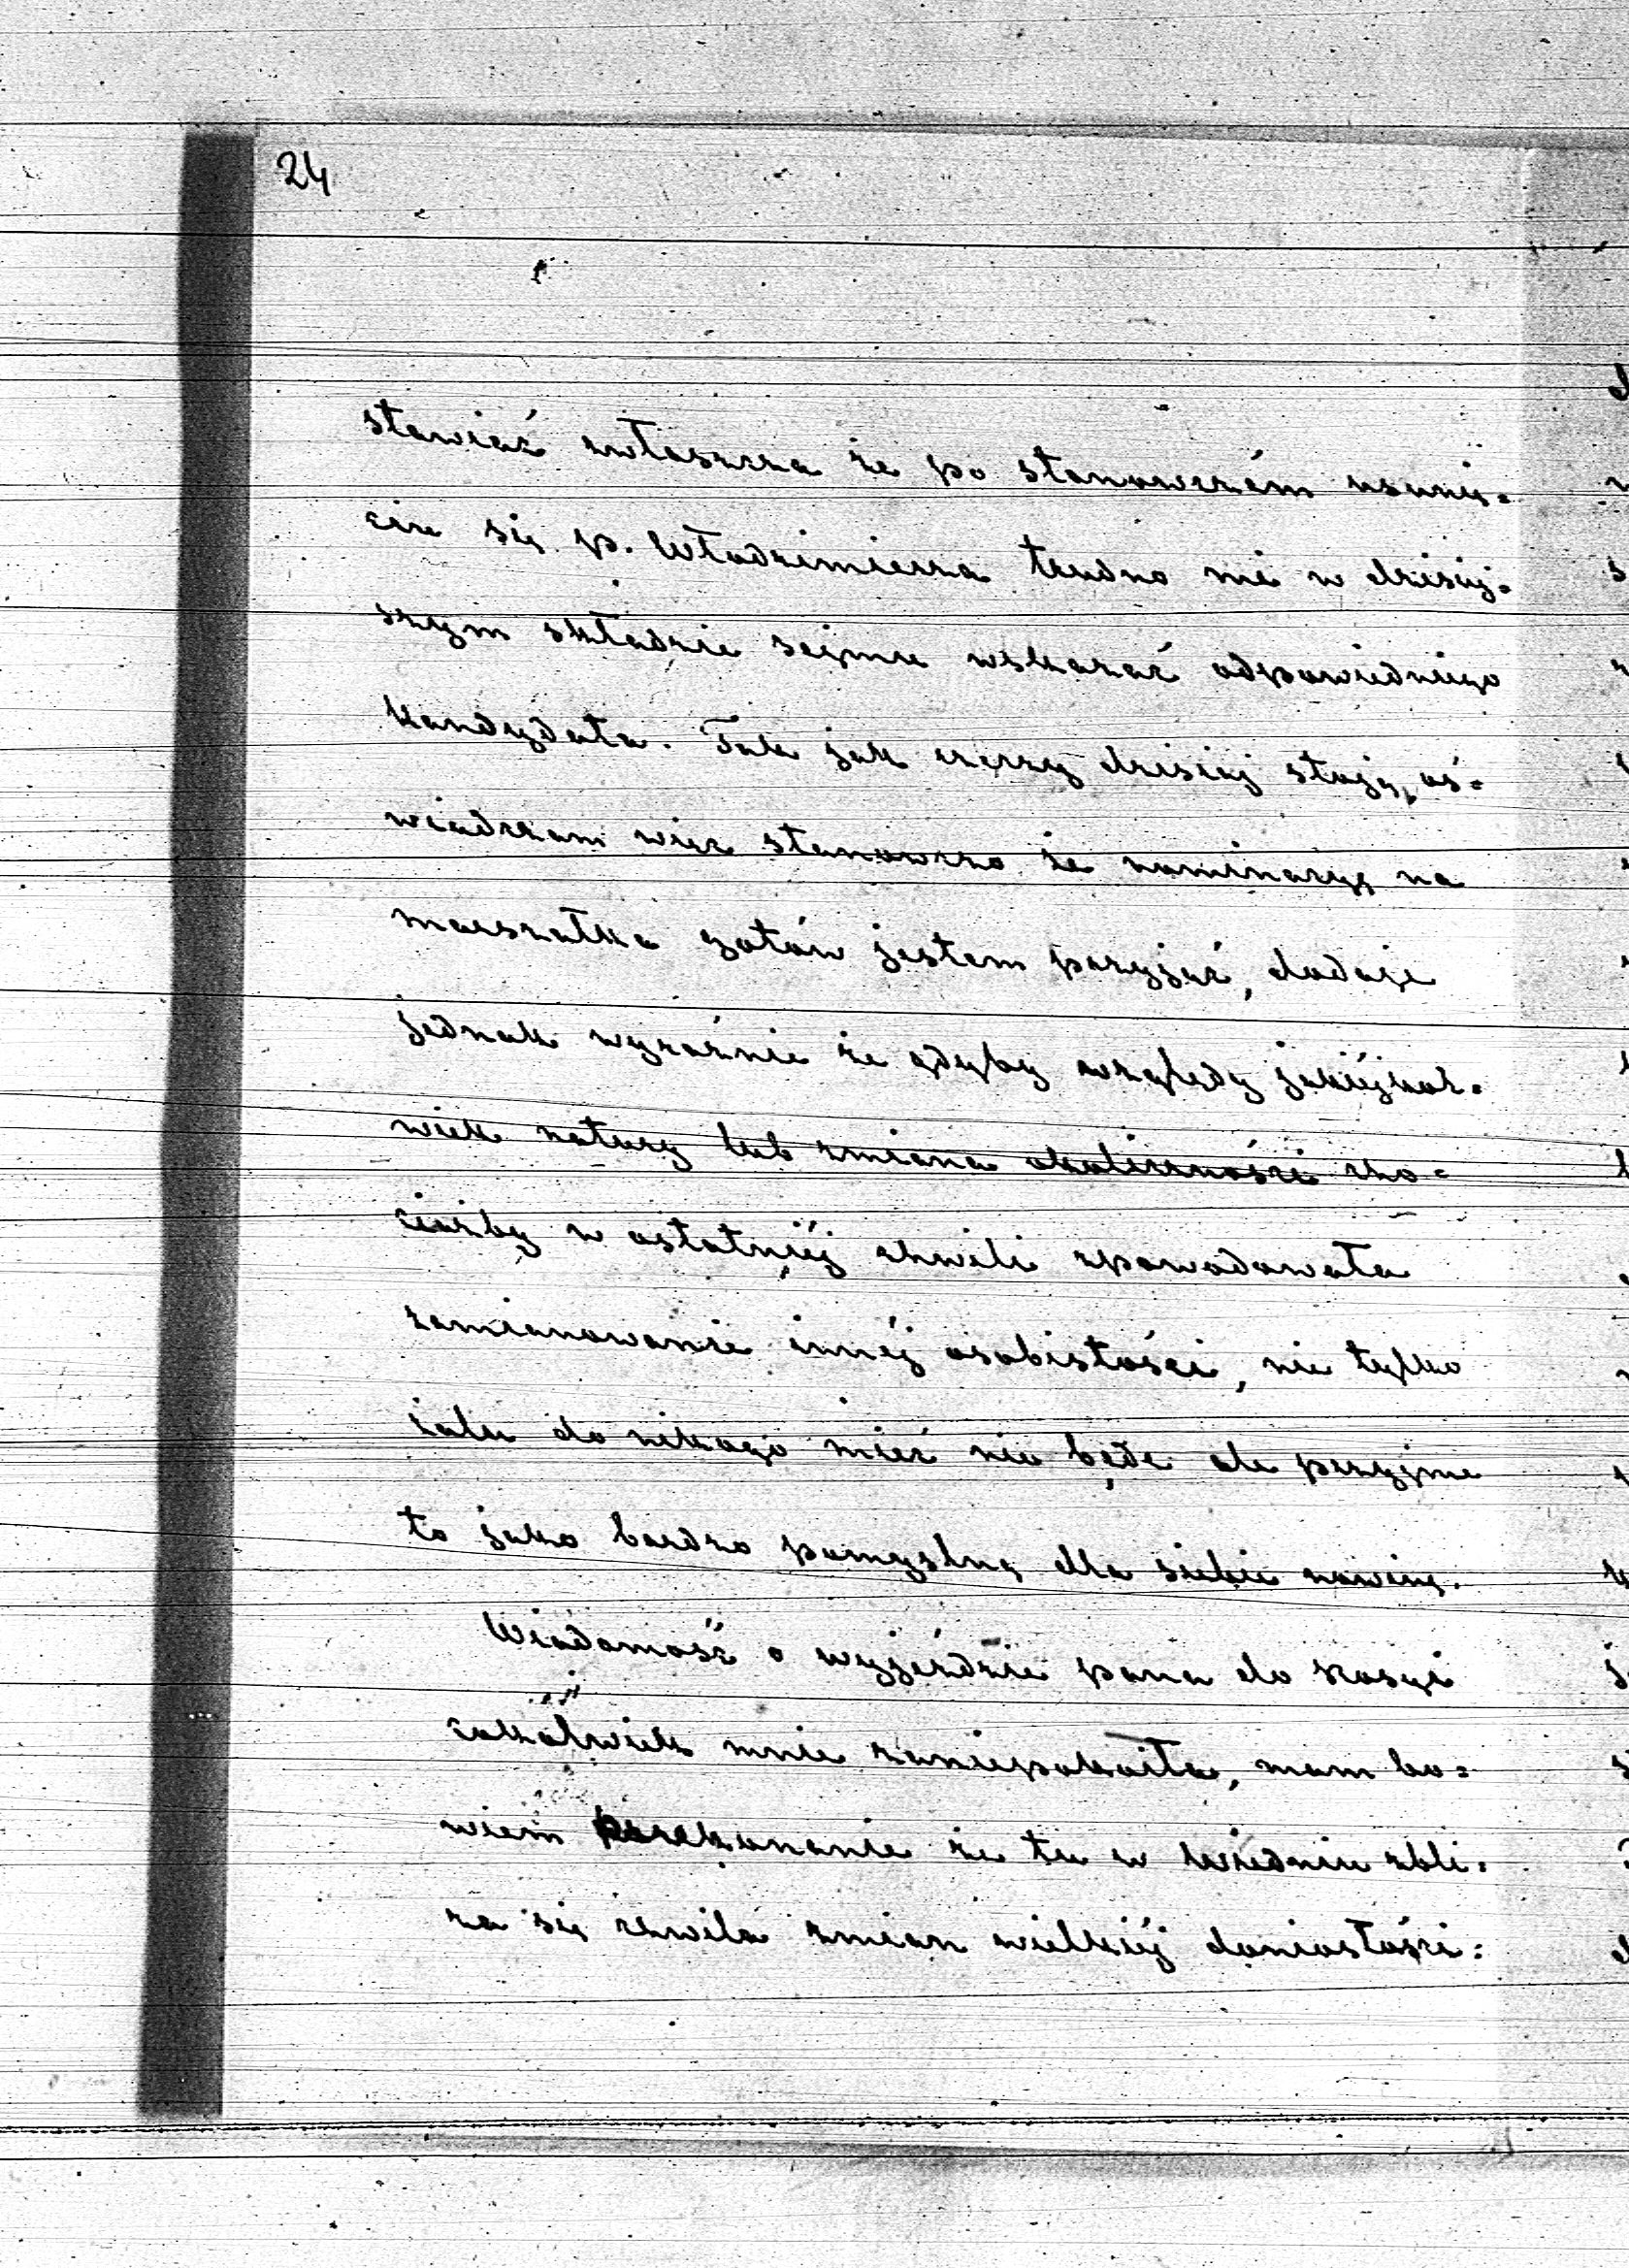 24
stawiać zwłaszcza że po stanowczém usunię=
ciu się p. Włodzimierza trudno mi w dzisiej=
szym składzie sejmu wskazać odpowiedniego
kandydata. Tak jak rzeczy dzisiaj stoją, oś=
wiadczam więc stanowczo że nominacyę na
marszałka gotów jestem przyjąć, dodaję
jednak wyraźnie że gdyby względy jakiéjkol=
wiek natury lub zmiana okoliczności cho=
ciażby w ostatniéj chwili spowodowała
zamianowanie innéj osobistości, nie tylko
żalu do nikogo mieć nie będę ale przyjmę
to jako bardzo pomyślną dla siebie nowinę.
Wiadomość o wyjeździe pana do Rosyi
cokolwiek mnie zaniepokoiła, mam bo=
wiem przekonanie że tu w Wiedniu zbli=
ża się chwila zmian wielkiéj doniosłości: